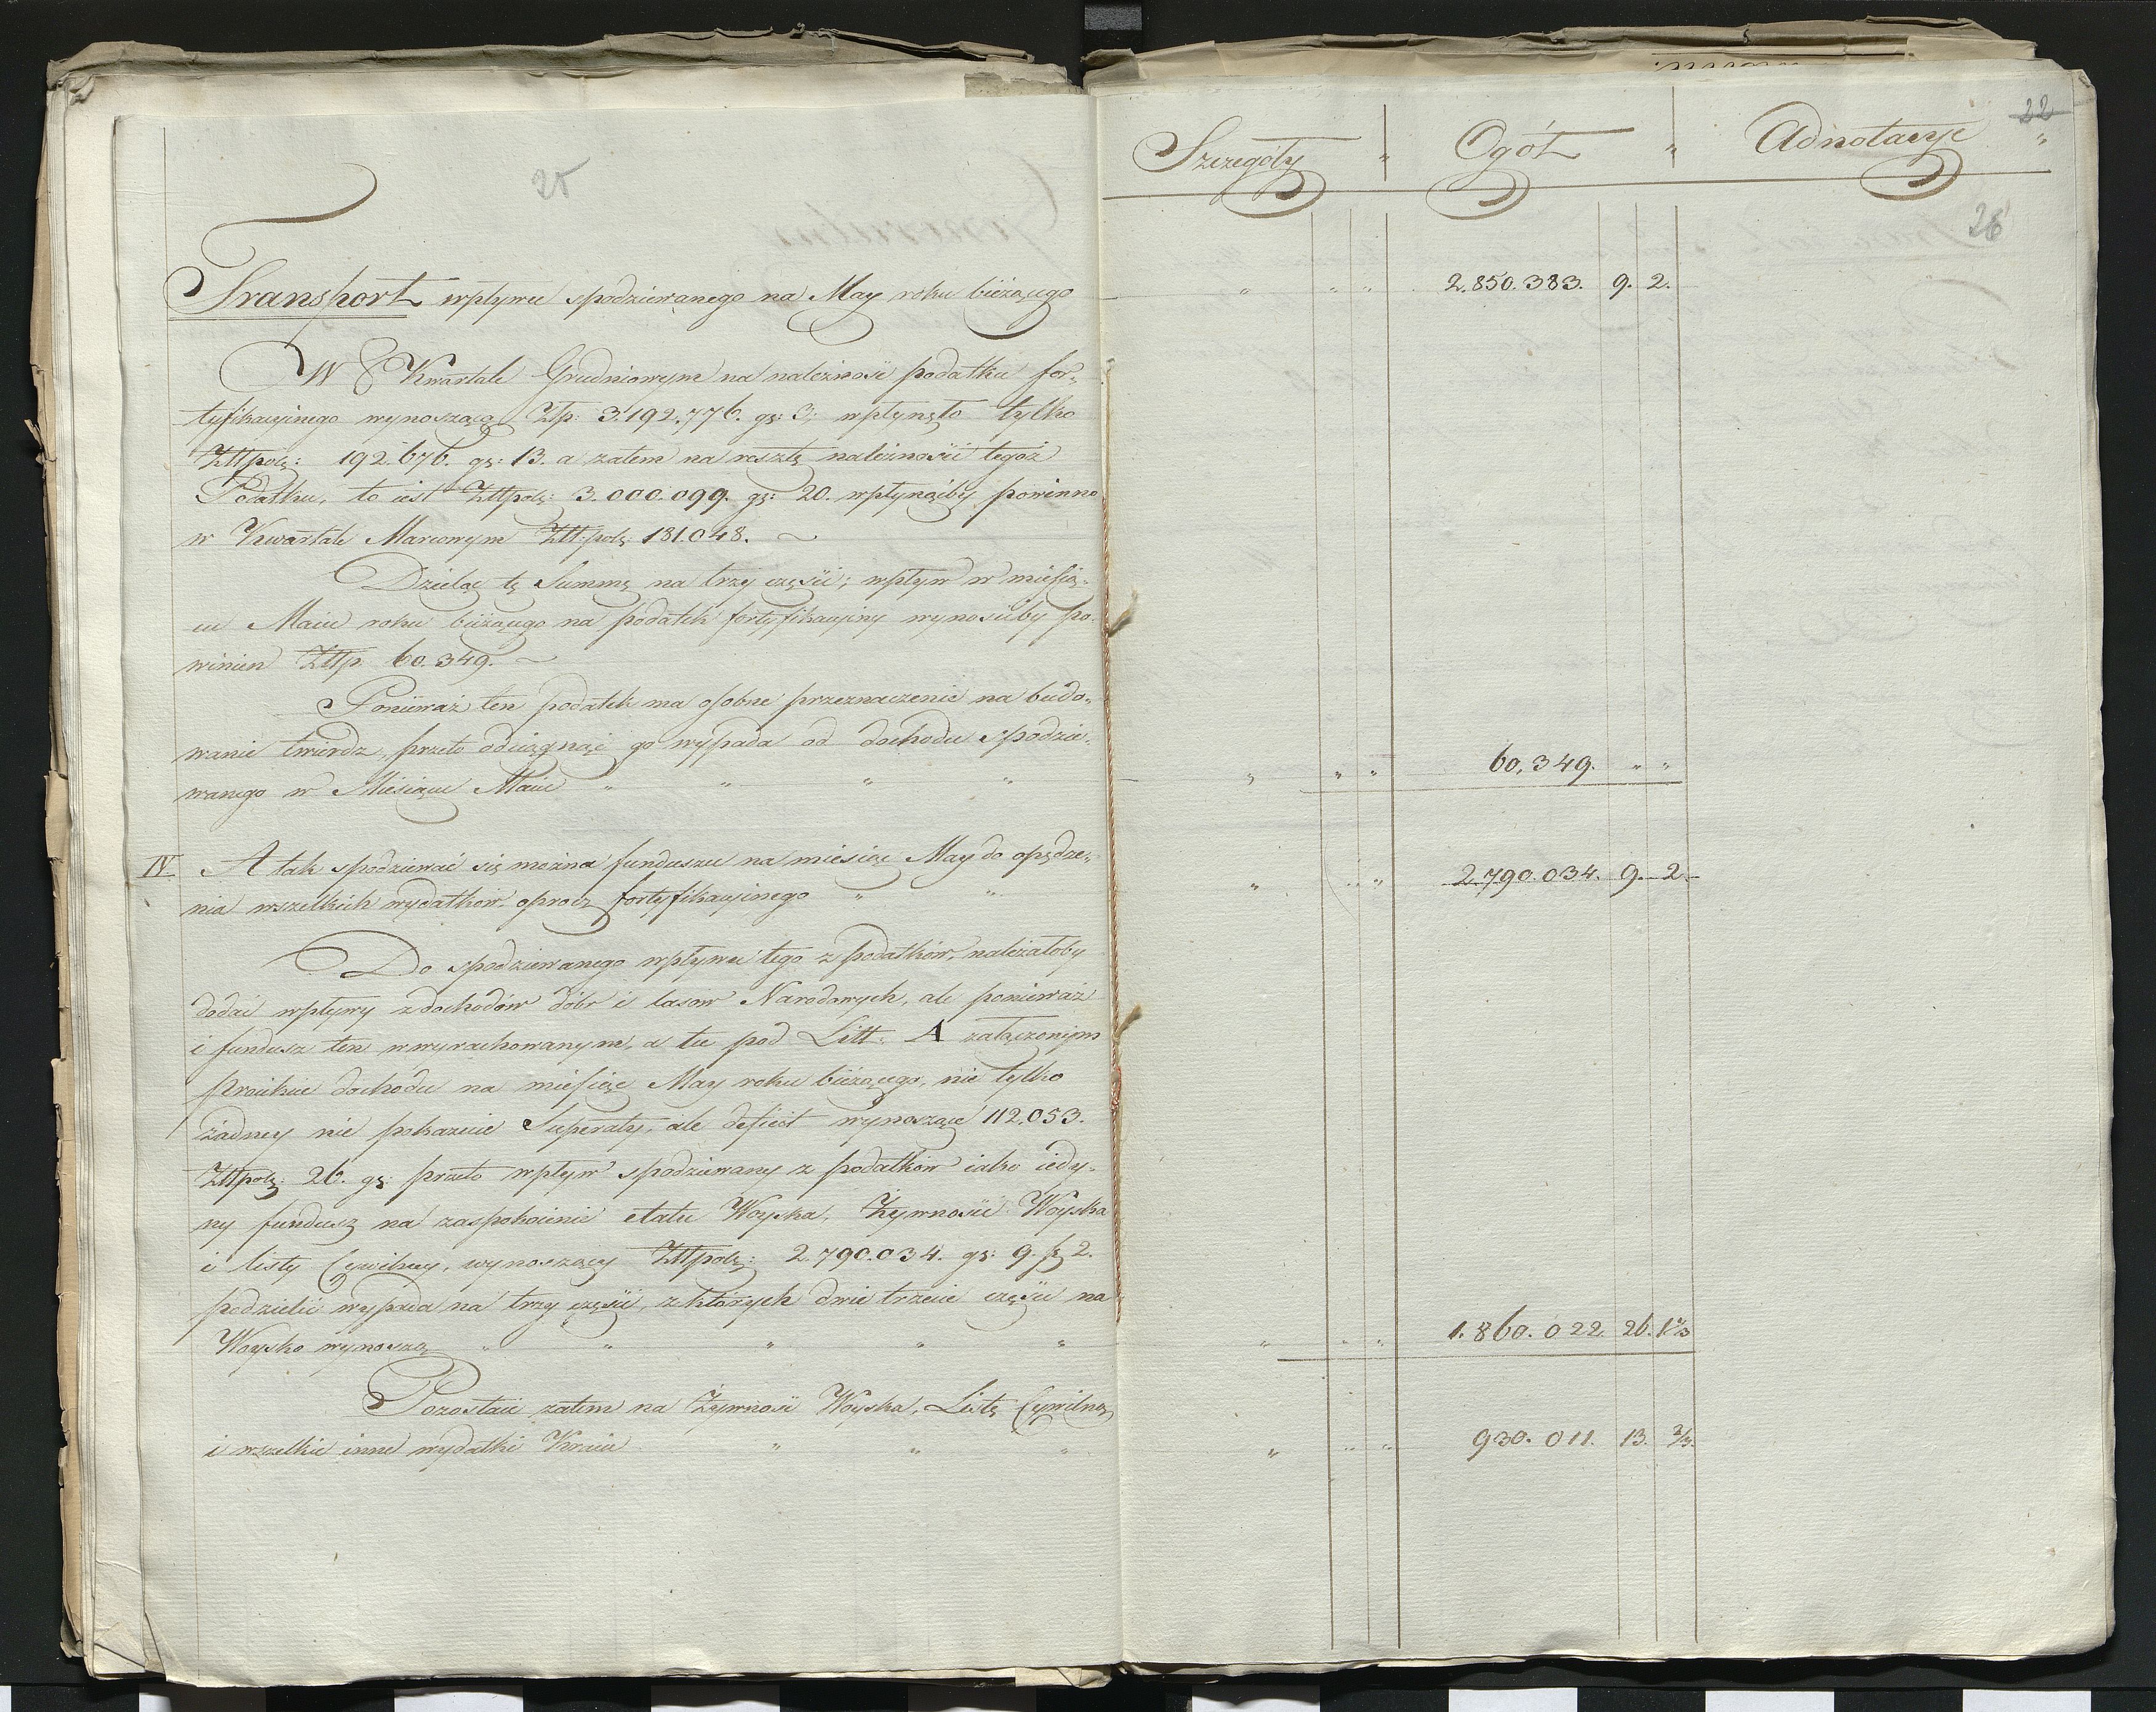 25
Transport wpływu spodziewanego na May roku bieżącego
W Kwartale Grudniowym na należność podatku for„
tyfikacyinego wynoszącą Złp: 3.192,776. gr: 3, wpłynęło tylko
Złłpolz: 192.676. gr: 13. a zatem na resztę należności tegoż
Podatku, to iest Złłpolz: 3.000.099. gr: 20. wpłynąćby powinno
w Kwartale Marcowym Złł.polz: 181.048. —
Dzieląc tę Summę na trzy części; wpływ w miesią„
cu Maiu roku bieżącego na podatek fortyfikacyiny wynosićby po„
winien Złłp. 60.349. —
Ponieważ ten podatek ma osobne przeznaczenie na budo„
wanie twierdz, przeto odciągnąć go wypada od dochodu spodzie„
wanego w Miesiącu Maiu „ „ „ „
IV. A tak spodziewać się można funduszu na miesiąc May do opędze„
nia wszelkich wydatków oprócz fortyfikacyinego „ „
Do spodziewanego wpływu tego z podatków, należałoby
dodać wpływy z dochodów dóbr i lasów Narodowych, ale ponieważ
i fundusz ten w wyrachowanym, a tu pod Litt: A załączonym
proiekcie dochodu na miesiąc May roku bieżącego, nie tylko
żadney nie pokazuie Superaty, ale deficit wynoszące 112.053.
Złłpolz: 26. gr: przeto wpływ spodziewany z podatków iako iedy„
ny fundusz na zaspokoienie etatu Woyska, Żywności Woyska
i listy Cywilney, wynoszący Złłpolz: 2.790.034. gr: 9. sz 2.
podzielić wypada na trzy części, z których dwie trzecie części na
Woysko wynoszą „ „ „ „ „
Pozostaie zatem na Żywność Woyska, Listę Cywilną,
i wszelkie inne wydatki Kraiu „ „ „
22
Szczegóły „ Ogół „ Adnotacye „
26
„ „ „ 2.850.383. 9. 2.
„ „ „ 60,349. „ „
„ „ „ 2.790.034. 9. 2.
„ „ „ 1.860.022. 26. 1 1/3
„ „ „ 930.011. 13. 2/3.